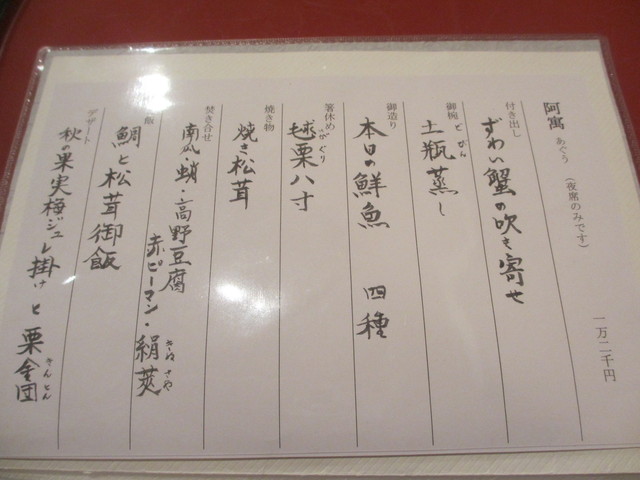 阿寓 あぐう (夜席のみです) 一万二千円
付き出し
ずわい蟹の吹き寄せ
御椀
どびん
土瓶蒸し
御造り
本日の鮮魚 四種
箸休め
いがぐり
毬栗八寸
焼き物
焼き松茸
焚き合せ
南瓜・蛸・高野豆腐
赤ピーマン・絹莢
きぬさや
飯
鯛と松茸御飯
デザート
秋の果実梅ジュレ掛けと栗金団
きんとん